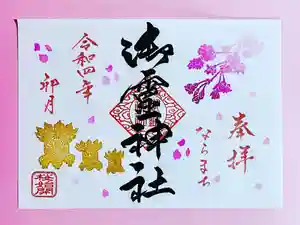 奉拝
ならまち
御霊神社
令和四年
卯月